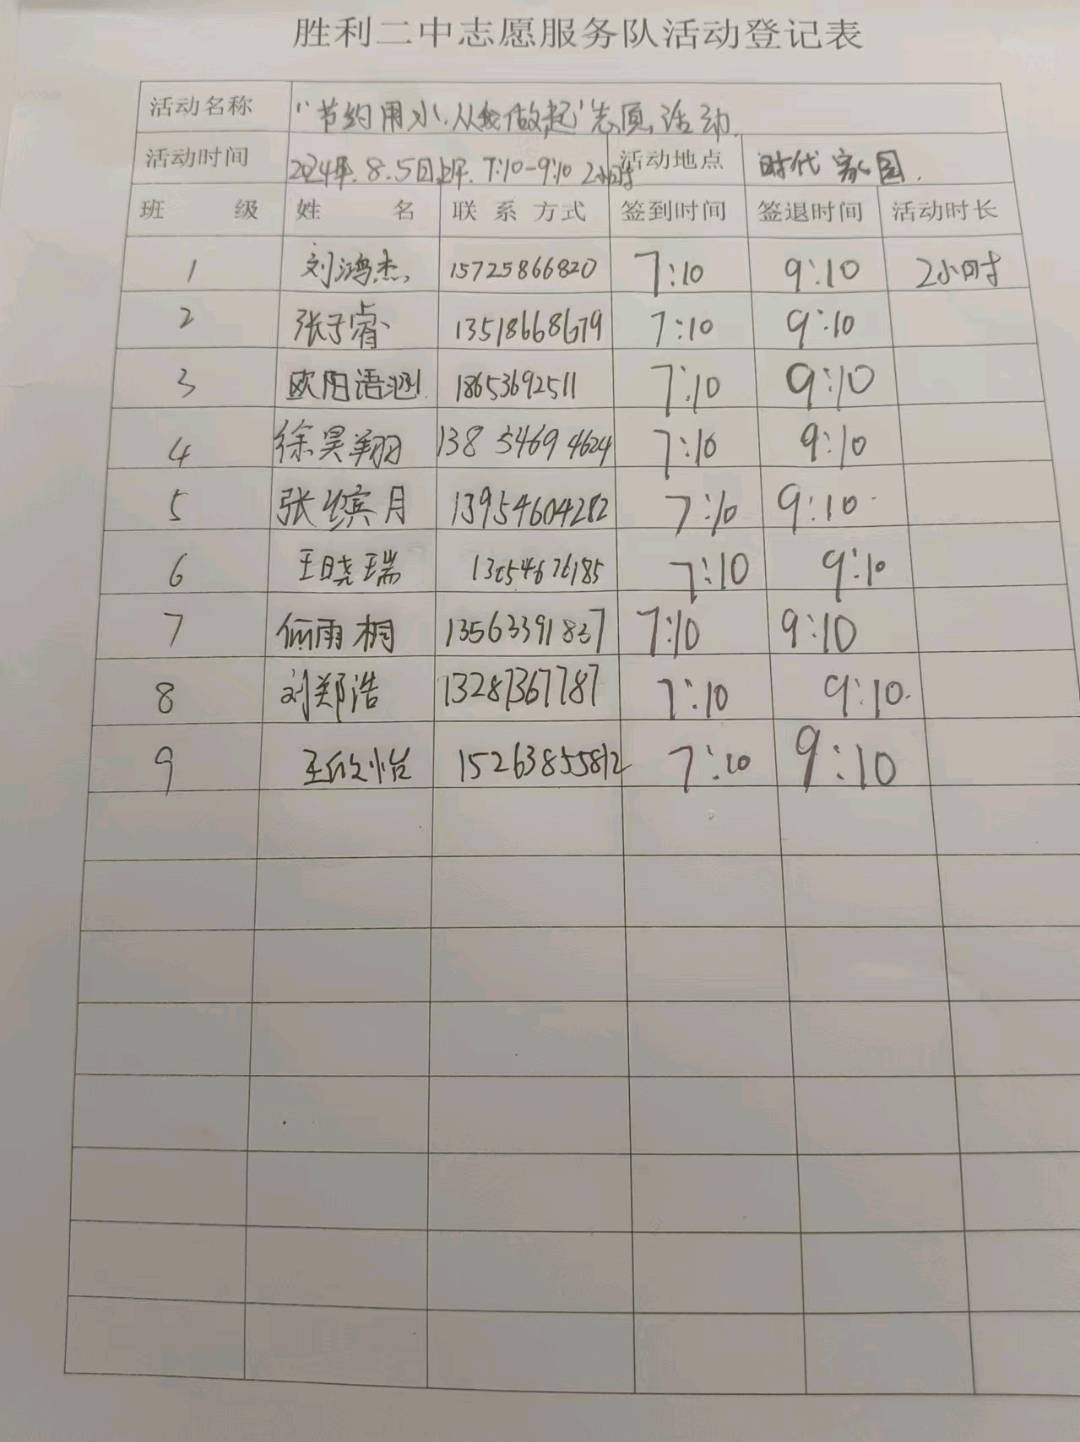 胜利二中志愿服务队活动登记表
活动名称 "节约用水.从我做起"志愿活动.
活动时间 2024年.8.5日上午.7:10-9:10 2小时 活动地点 时代家园.
班级 姓名 联系方式 签到时间 签退时间 活动时长
1 刘鸿杰 15725866820 7:10 9:10 2小时
2 张子睿 13518668679 7:10 9:10
3 欧阳语涵 18653692511 7:10 9:10
4 徐昊翔 138 5469 4624 7:10 9:10
5 张缤月 13954604282 7:10 9:10
6 王晓瑞 7:10 9:10
7 雨桐 13563391837 7:10 9:10
8 刘郑浩 13287367787 7:10 9:10
9 王欣怡 15263855812 7:10 9:10